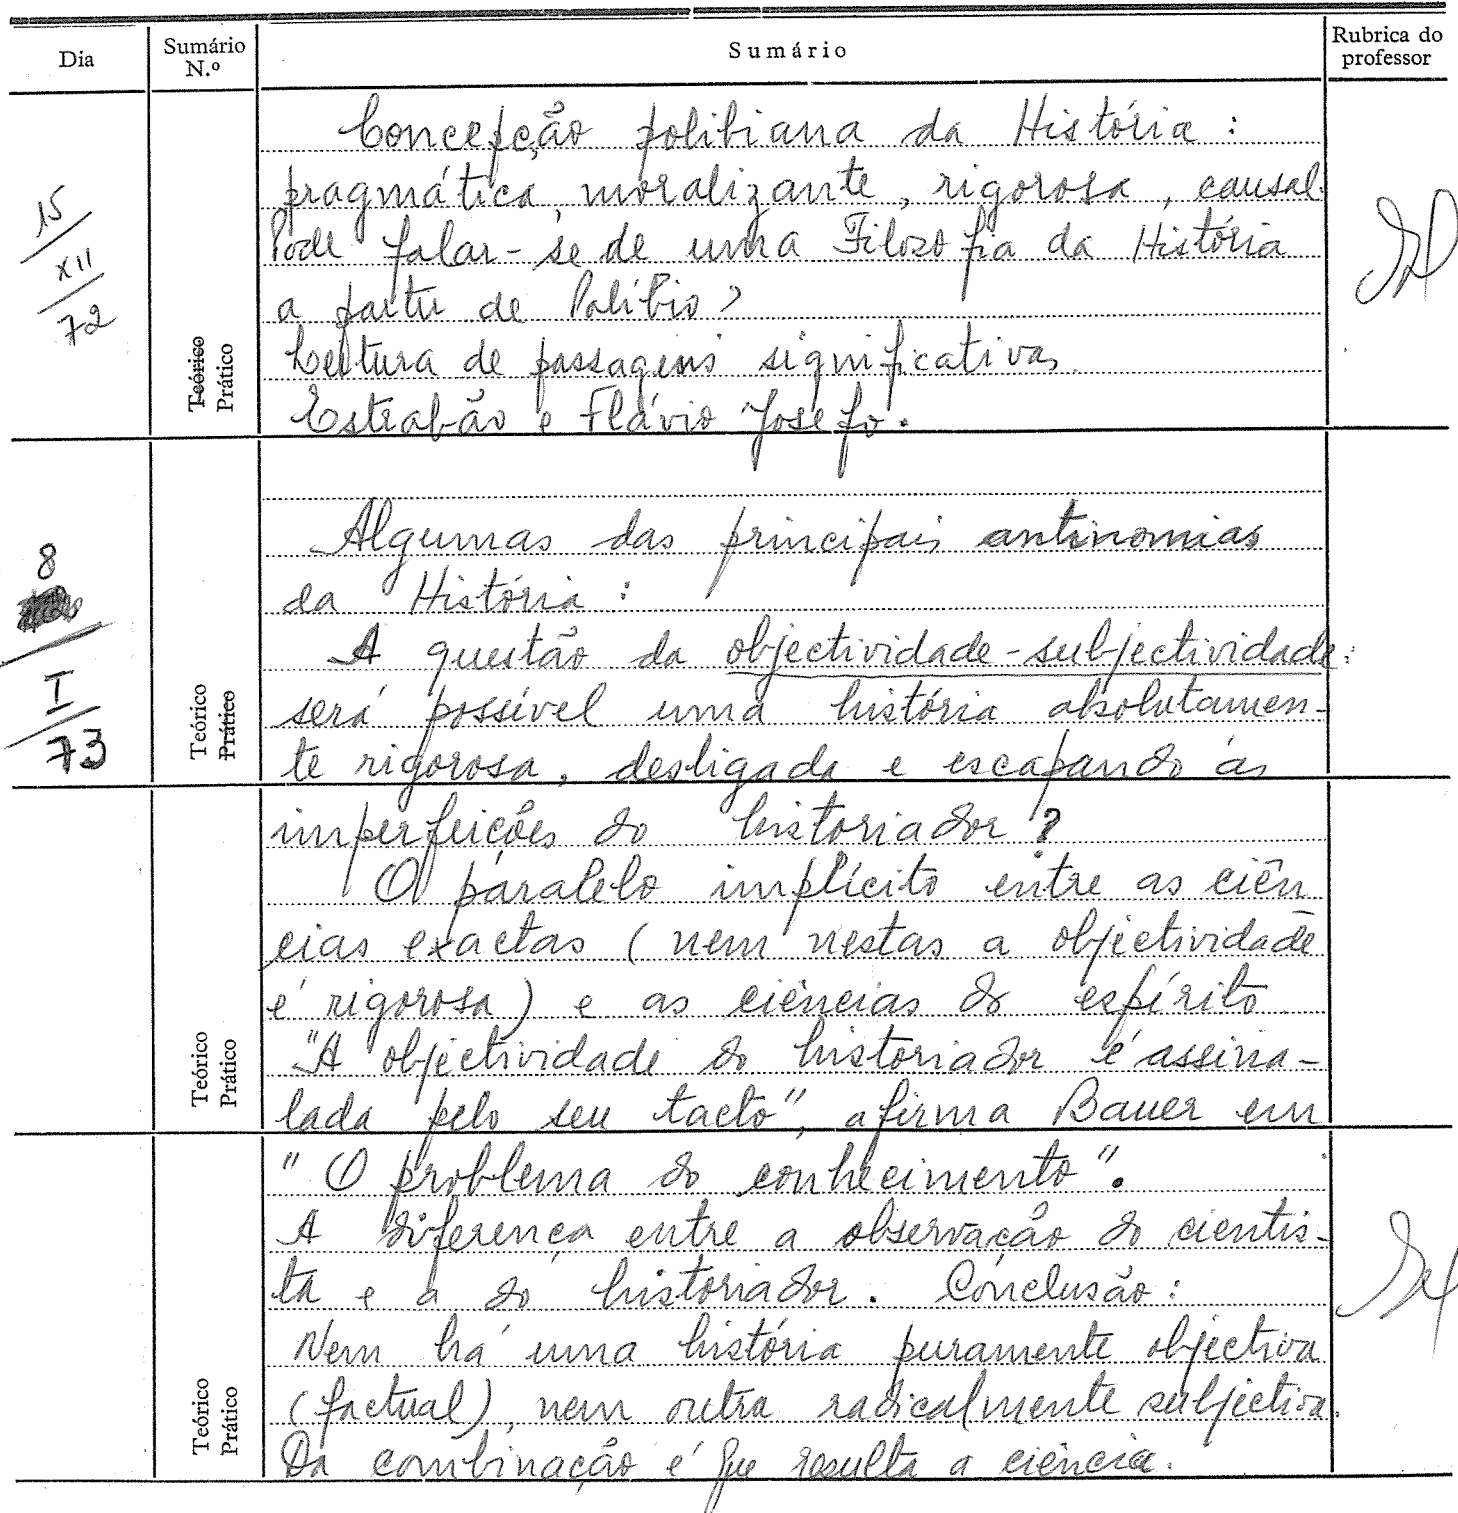 Dia
Sumário N.º
Sumário
Rubrica do professor
15
XII
72
Teórico
Prático
Concepção polibiana da História:
pragmática, moralizante, rigorosa, causal.
Pode falar-se de uma Filosofia da História
a partir de Políbio?
Leitura de passagens significativas.
Estrabão e Flávio Josefo.
8
I
73
Teórico
Prático
Algumas das principais antinomias
da História:
A questão da objectividade-subjectividade:
será possível uma história absolutamen-
te rigorosa, desligada e escapando às
Teórico
Prático
imperfeições do historiador?
O paralelo implícito entre as ciên
cias exactas (nem nestas a objectividade
é rigorosa) e as ciências do espírito
"A objectividade do historiador é assina-
lada pelo seu tacto", afirma Bauer em
Teórico
Prático
"O problema do conhecimento".
A diferença entre a observação do cientis-
ta e a do historiador. Conclusão:
Nem há uma história puramente objectiva
(factual), nem outra radicalmente subjectiva.
Da combinação é que resulta a ciência.